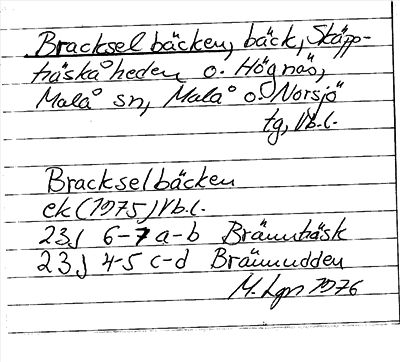 Brackselbäcken, bäck, Skäpp-
träskåheden o. Högnäs,
Malå sn, Malå o. Norsjö
tg, Vb.l.
Brackselbäcken
ek (1975) Vb.l.
23J 6-7 a-b Brännträsk
23J 4-5 c-d Brännudden
M. Lgn 1976